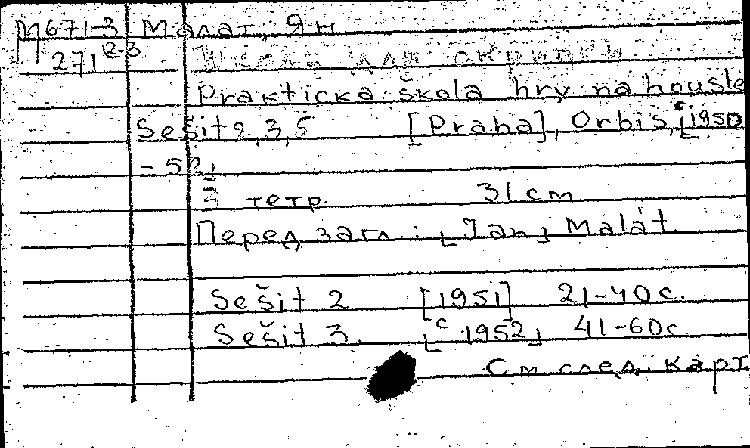 М671-3 Малат, Ян
271 2-3 Школа для скрипки
Praktická škola hry na housle
Sešit 2, 3, 5 [Praha], Orbis, [c 1950
- 52]
3 тетр. 31 cm
Перед загл.: [Jan] Malát
Sešit 2 [1951] 21-40 с.
Sešit 3. [c 1952] 41-60 с
См след. карт